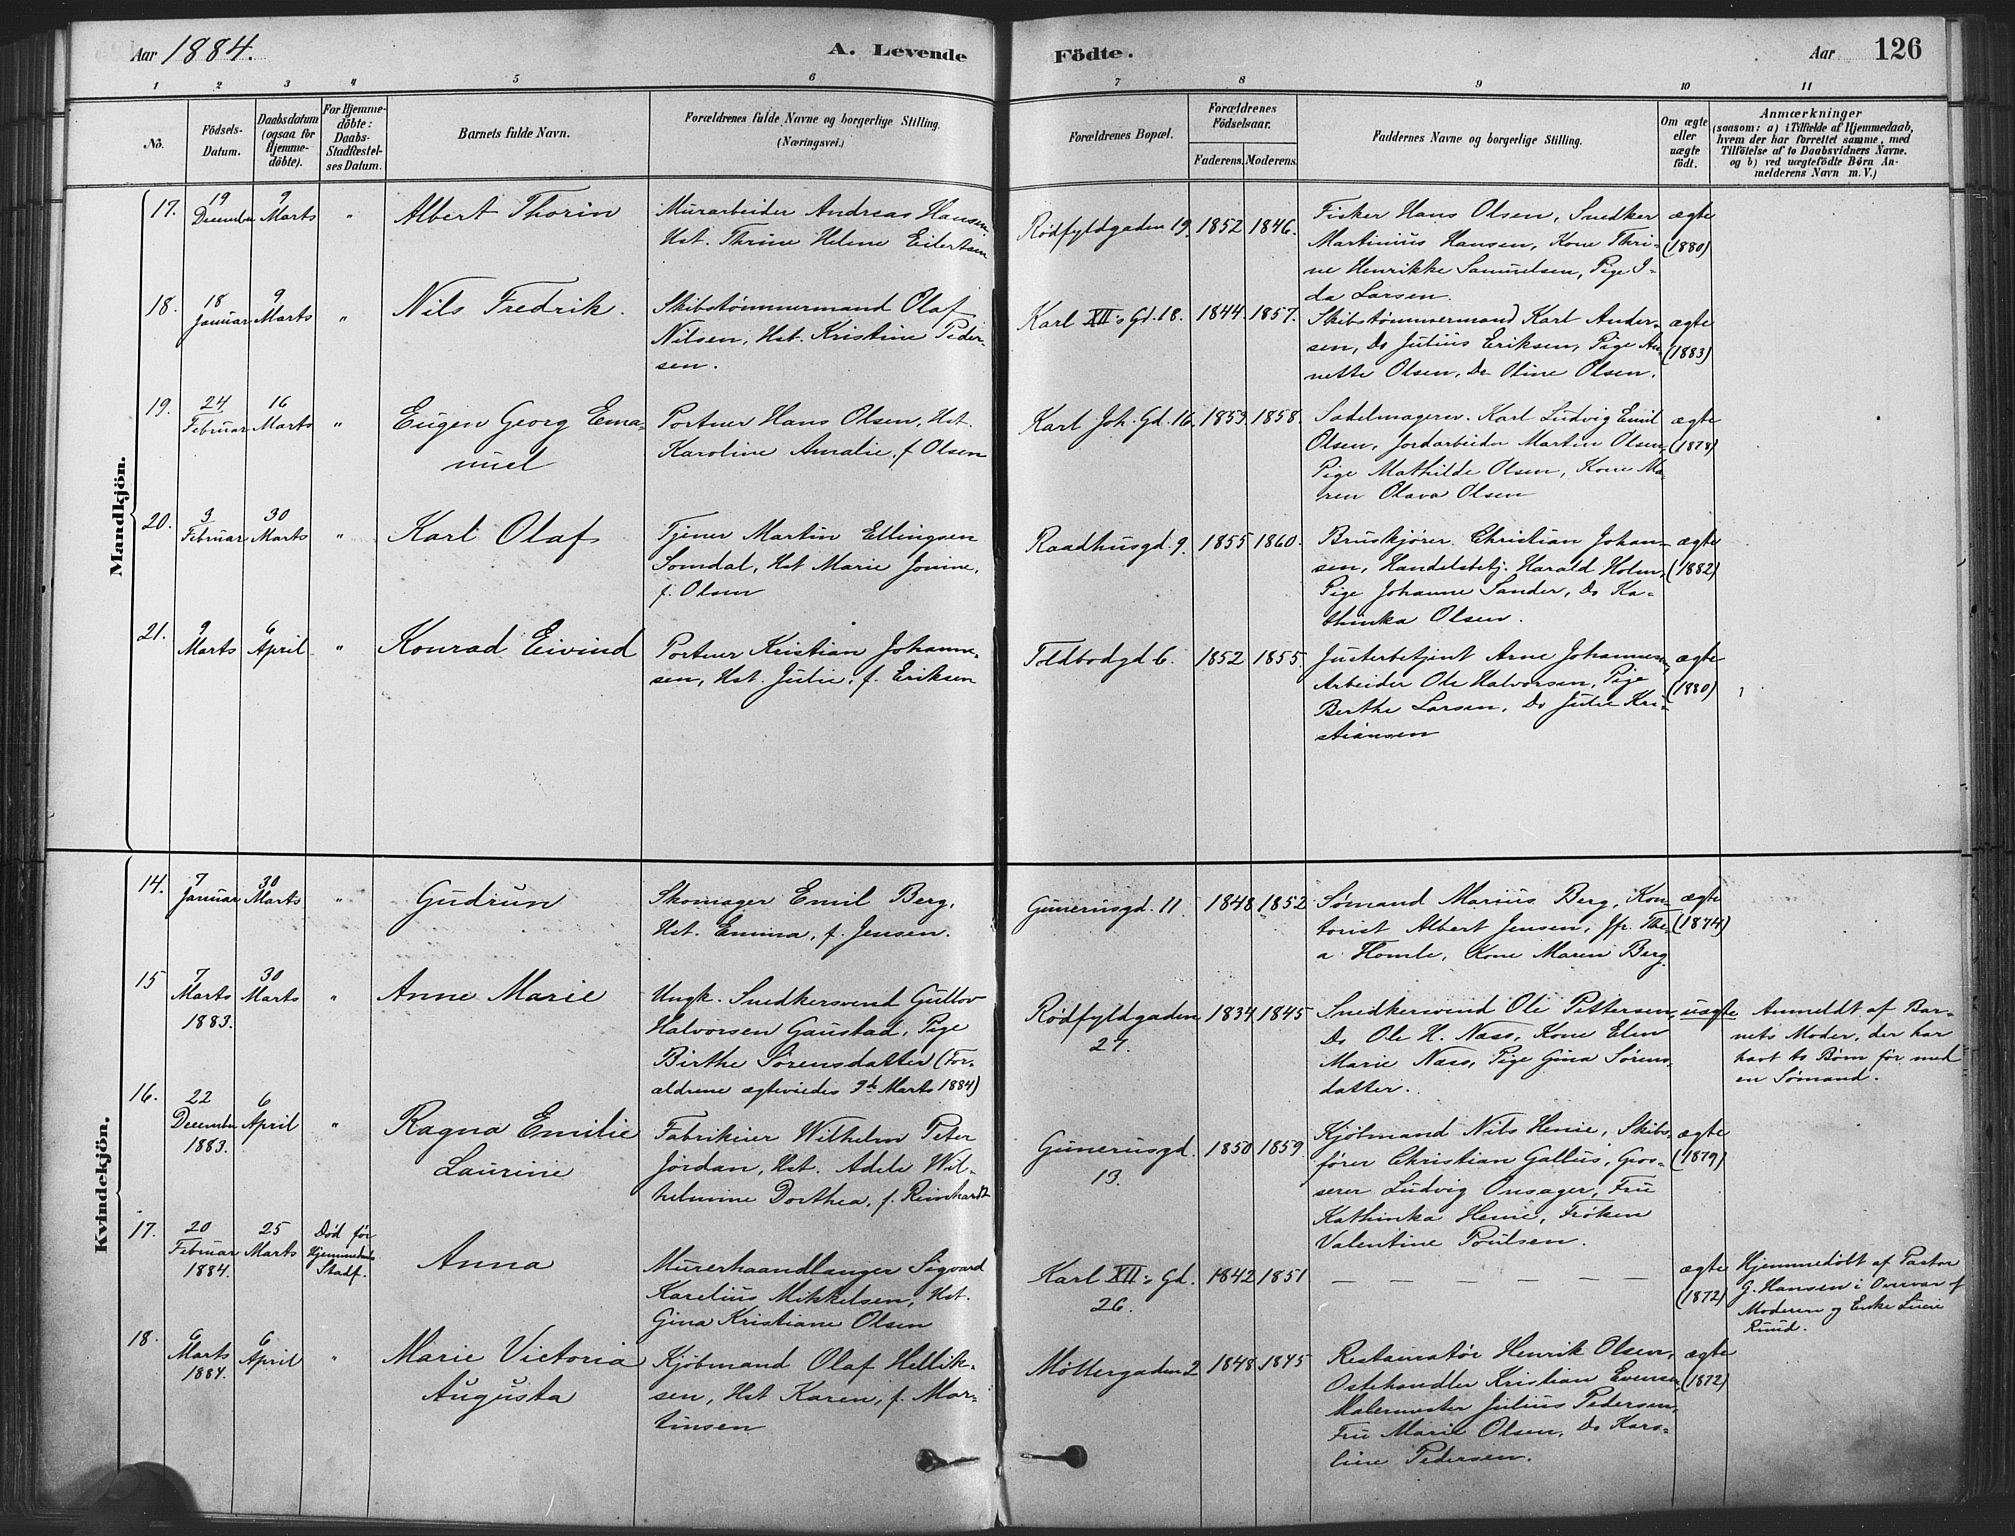 Aar 1884. A. Levende Födte. Aar 126
1 2 3 4 5 6 7 8 9 10 11
No.
Födsels-
Datum.
Daabsdatum
(ogsaa för
Hjemme-
döbte).
For Hjemme-
döbte:
Daabs-
Stadfæstel-
ses Datum.
Barnets fulde Navn.
Forældrenes fulde Navne og borgerlige Stilling.
(Næringsvei.)
Forældrenes Bopæl.
Forældrenes
Födselsaar.
Faderens. Moderens.
Faddernes Navne og borgerlige Stilling.
Om ægte
eller
uægte
födt.
Anmærkninger
(saasom: a) i Tilfælde af Hjemmedaab,
hvem der har forrettet samme, med
Tilföielse af to Daabsvidners Navne.
og b) ved uægtefödte Börn An-
melderens Navn m. V.)
Mandkjön.
17.
19
December
9
Marts
"
Albert Thorin
Murarbeider Andreas Hansen,
Hst. Thrine Helene Eilertsen
Rødfyldgaden 19. 1852 1846.
Fisker Hans Olsen, Snedker
Martinius Hansen, Kone Thri-
ne Henrikke Samuelsen, Pige I-
da Larsen.
ægte
(1880)
18.
18
Januar
9
Marts
"
Nils Fredrik.
Skibstømmermand Olaf
Nilsen, Hst. Kristine Peder-
sen.
Karl XII's Gd. 18. 1844 1857.
Skibstømmermand Karl Ander-
sen, Do Julius Eriksen, Pige An-
nette Olsen, Do Oline Olsen.
ægte
(1883)
19.
24
Februar
16
Marts
"
Eugen Georg Ema-
nuel
Portner Hans Olsen, Hst.
Karoline Amalie, f. Olsen
Karl Joh. Gd. 16. 1853 1858.
Sadelmagersv. Karl Ludvig Emil
Olsen, Jordarbeider Martin Olsen,
Pige Mathilde Olsen, Kone Ma-
ren Olava Olsen
ægte
(1878)
20.
3
Februar
30
Marts
"
Karl Olaf
Tjener Martin Ellingsen
Somdal, Hst Marie Jonine,
f. Olsen
Raadhusgd. 9. 1855 1860.
Bruskjører Christian Johan-
sen, Handelsbetj. Harald Holm,
Pige Johanne Sander, Do Ka-
thinka Olsen.
ægte
(1882)
21.
9
Marts
6
April
"
Konrad Eivind
Portner Kristian Johanne-
sen, Hst. Julie, f. Eriksen
Toldbodgd 6. 1852 1855.
Justerbetjent Arne Johannesen,
Arbeider Ole Halvorsen, Pige
Berthe Larsen, Do Julie Kri-
stiansen
ægte
(1880)
Kvindekjön.
14.
7
Januar
30
Marts
"
Gudrun
Skomager Emil Berg,
Hst. Emma, f. Jensen.
Gunerusgd. 11. 1848 1852
Sømand Marius Berg, Kon-
torist Albert Jensen, Jfr. The-
a Homle, Kone Maren Berg
ægte
(1874)
15
7
Marts
1883.
30
Marts
"
Anne Marie
Ungk. Snedkersvend Gullov
Halvorsen Gaustad, Pige
Birthe Sørensdatter (For-
ældrene ægteviedes 9de Marts 1884)
Rødfyldgaden
27.
1834 1845
Snedkersvend Ole Pettersen,
Do Ole H. Næss, Kone Elen
Marie Næss, Pige Gina Sørens-
datter.
uægte
Anmeldt af Bar-
nets Moder, der har
havt to Børn før med
en Sømand.
16.
22
December
1883.
6
April
"
Ragna Emilie
Laurine
Fabrikeier Wilhelm Peter
Jordan, Hst. Adele Wil-
helmine Dorthea, f. Reinhardt
Gunerusgd.
13.
1850 1859.
Kjøbmand Nils Henie, Skibs-
fører Christian Gallus, Gros-
serer Ludvig Onsager, Fru
Kathinka Henie, Frøken
Valentine Poulsen.
ægte
(1879)
17.
20
Februar
1884.
25
Marts
Død før
Hjemmedaabs
Stadf.
Anna
Murerhaandlanger Sigvard
Karelius Mikkelsen, Hst.
Gina Kristiane Olsen
Karl XII's Gd.
26.
1842 1851
— — — — — —
ægte
(1872)
Hjemmedøbt af Pastor
G. Hansen i Overvær af
Moderen og Enke Lucie
Ruud.
18.
6
Marts
1884.
6
April
"
Marie Victoria
Augusta
Kjøbmand Olaf Hellik-
sen, Hst Karen, f. Mar-
tinsen
Møllergaden 2 1848 1845
Restauratør Henrik Olsen,
Ostehandler Kristian Evensen,
Malermester Julius Pedersen,
Fru Marie Olsen, Do Karo-
line Pedersen.
ægte
(1872)